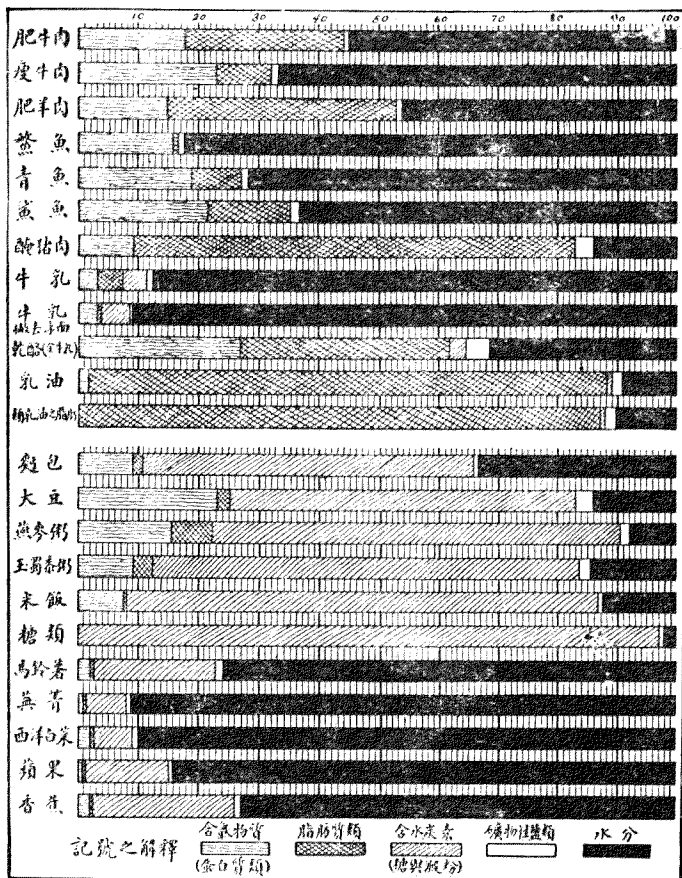 10 20 30 40 50 60 70 80 90 100
肥牛肉
瘦牛肉
肥羊肉
鱉魚
青魚
鯊魚
醃猪肉
牛乳
牛乳
乾酪(全牛乳)
乳油
類乳油之脂肪
麵包
大豆
燕麥粥
玉蜀黍粥
米飯
糖類
馬鈴薯
蕪菁
西洋白菜
蘋果
香蕉
記號之解釋
含氮物質
(蛋白質類)
脂肪質類
含水炭素
(糖與殿粉)
礦物性鹽類
水分